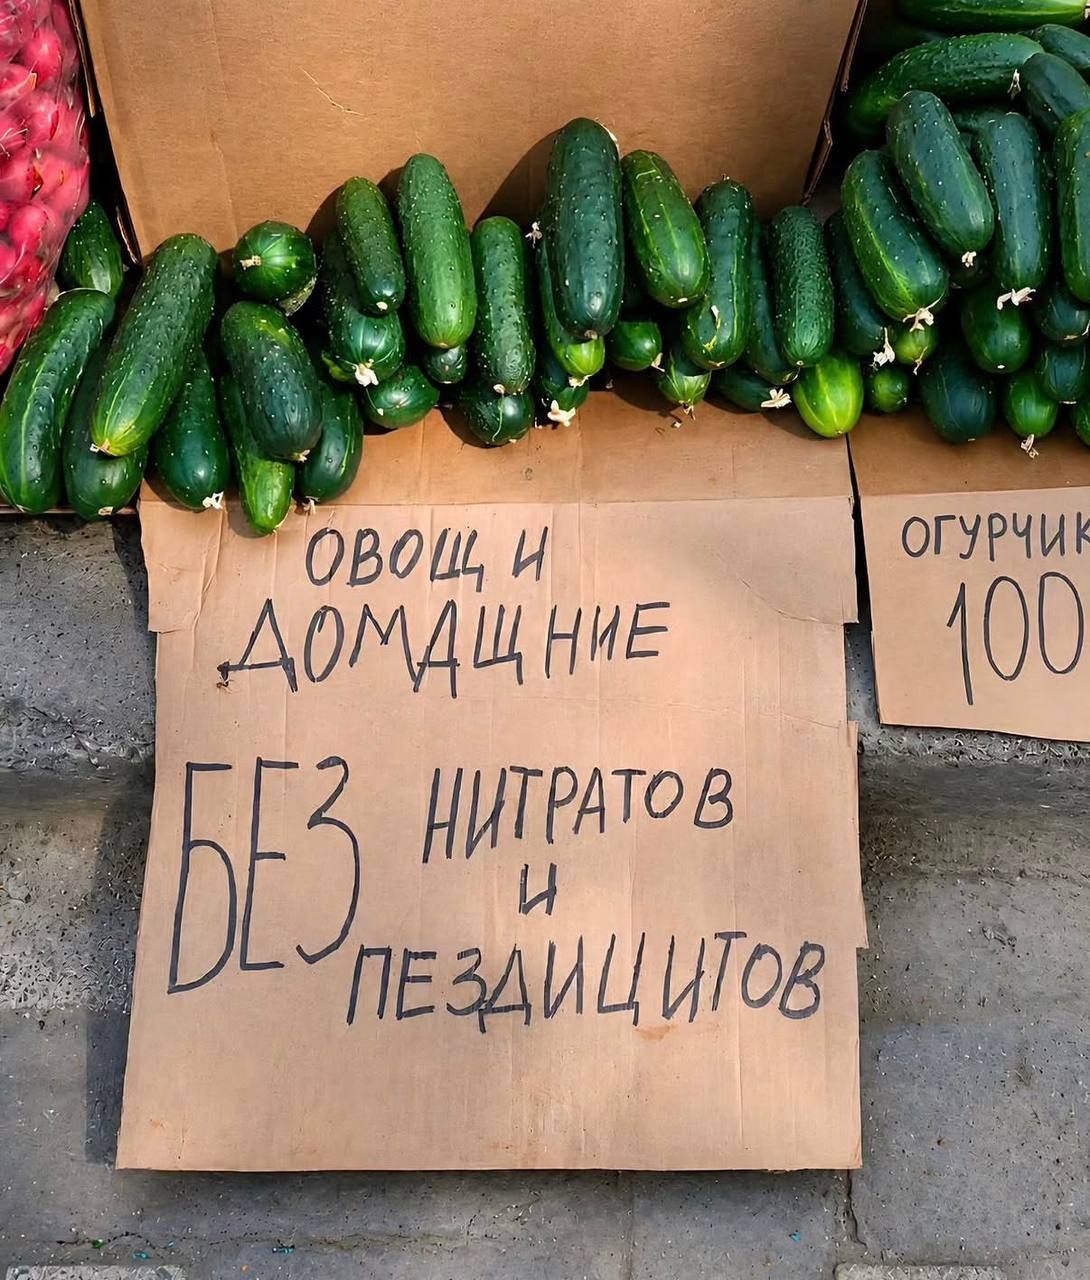 ОВОЩИ
ДОМАЩНИЕ
БЕЗ НИТРАТОВ
И
ПЕЗДИЦИТОВ
ОГУРЧИК
100